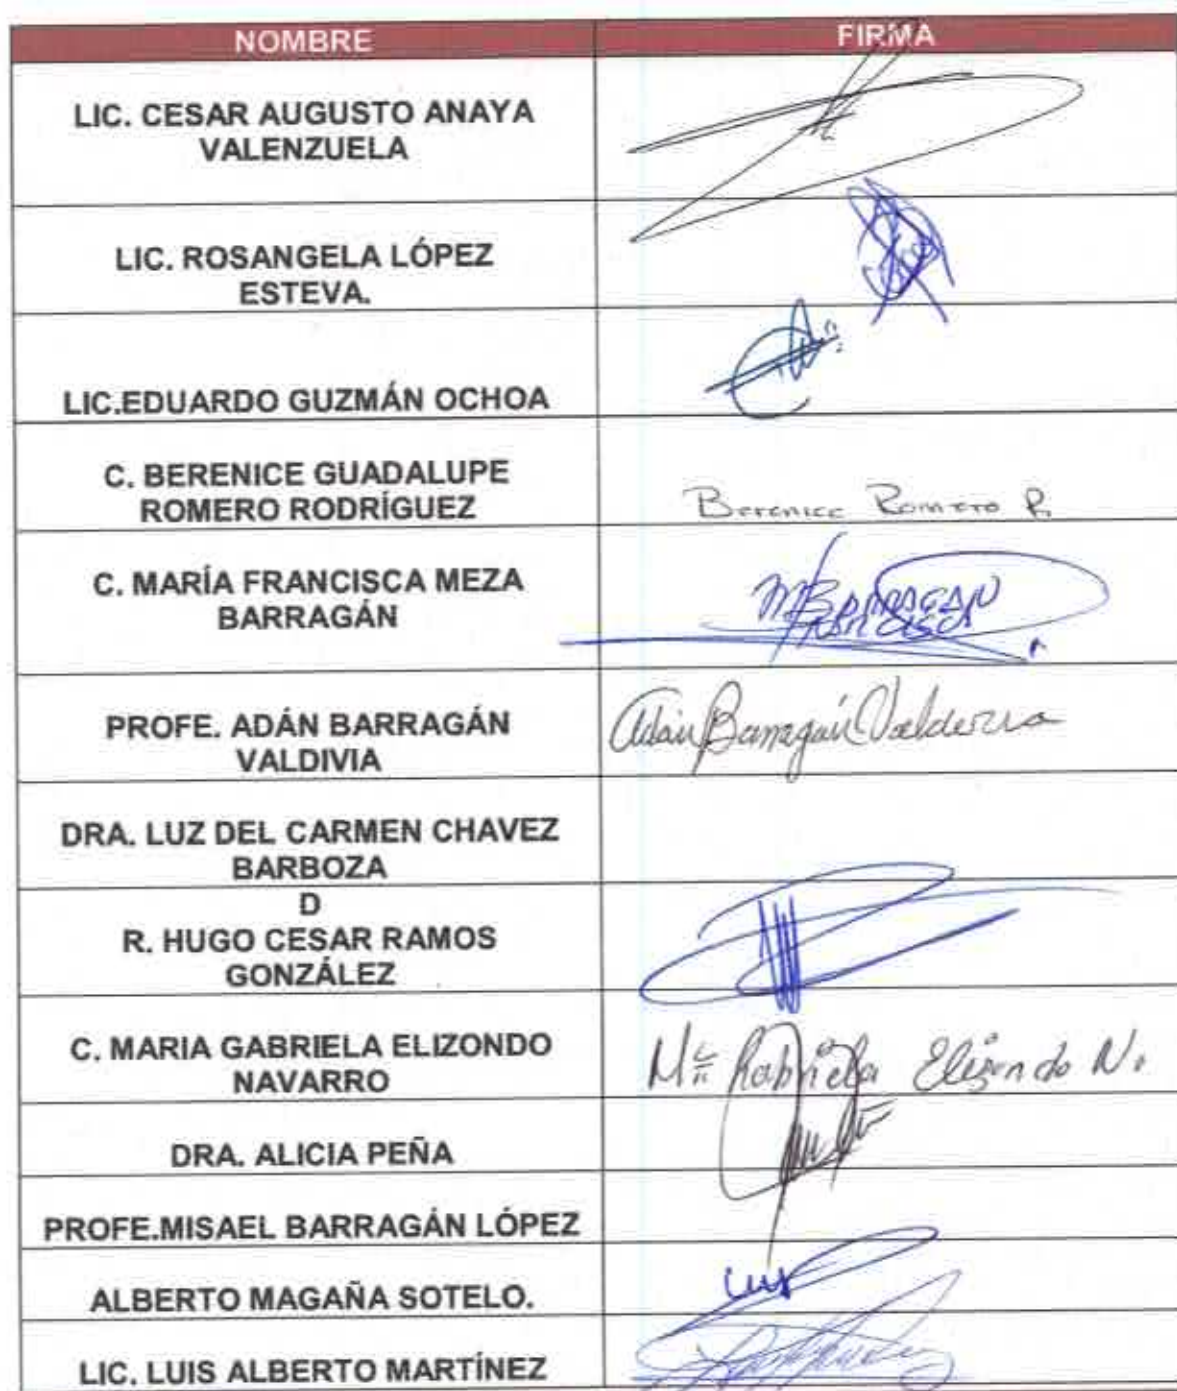 NOMBRE FIRMA
LIC. CESAR AUGUSTO ANAYA
VALENZUELA
LIC. ROSANGELA LÓPEZ
ESTEVA.
LIC.EDUARDO GUZMÁN OCHOA
C. BERENICE GUADALUPE
ROMERO RODRÍGUEZ
Berenice Romero R.
C. MARÍA FRANCISCA MEZA
BARRAGÁN
M BARRAGAN
FRANCISCA
PROFE. ADÁN BARRAGÁN
VALDIVIA
Adán Barragán
DRA. LUZ DEL CARMEN CHAVEZ
BARBOZA
D
R. HUGO CESAR RAMOS
GONZÁLEZ
C. MARIA GABRIELA ELIZONDO
NAVARRO
Ma Gabriela Elizondo N.
DRA. ALICIA PEÑA
PROFE.MISAEL BARRAGÁN LÓPEZ
ALBERTO MAGAÑA SOTELO.
LIC. LUIS ALBERTO MARTÍNEZ